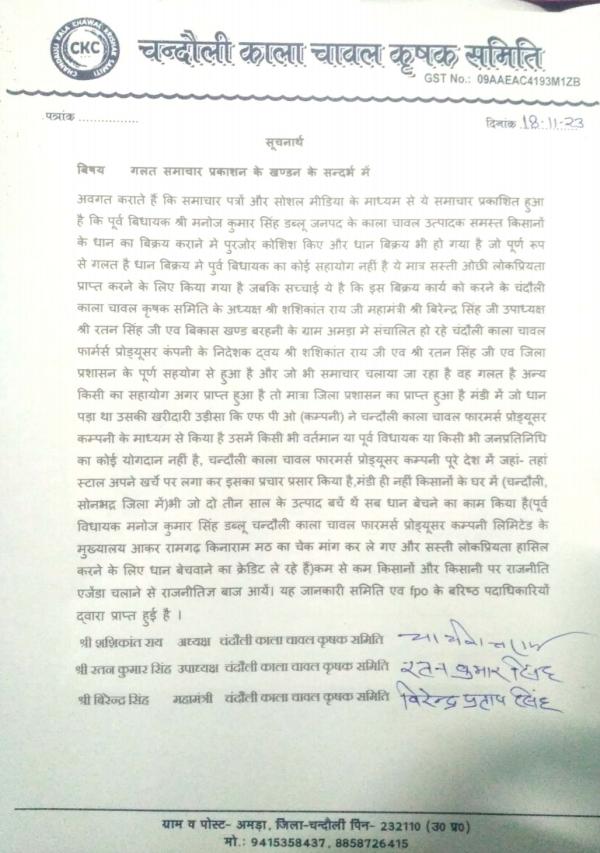 CHANDAULI KALA CHAWAL KRISHAK SAMITI
CKC
चन्दौली काला चावल कृषक समिति
GST No.: 09AAEAC4193M1ZB
पत्रांक ................
दिनांक 18-11-23
सूचनार्थ
बिषय गलत समाचार प्रकाशन के खण्डन के सन्दर्भ में
अवगत कराते हैं कि समाचार पत्रों और सोशल मीडिया के माध्यम से ये समाचार प्रकाशित हुआ
है कि पूर्व बिधायक श्री मनोज कुमार सिंह डब्लू जनपद के काला चावल उत्पादक समस्त किसानों
के धान का बिक्रय कराने मे पुरजोर कोशिश किए और धान बिक्रय भी हो गया है जो पूर्ण रूप
से गलत है धान बिक्रय मे पुर्व बिधायक का कोई सहायोग नहीं है ये मात्र सस्ती ओछी लोकप्रियता
प्राप्त करने के लिए किया गया है जबकि सच्चाई ये है कि इस बिक्रय कार्य को करने के चंदौली
काला चावल कृषक समिति के अध्यक्ष श्री शशिकांत राय जी महामंत्री श्री बिरेन्द्र सिंह जी उपाध्यक्ष
श्री रतन सिंह जी एव बिकास खण्ड बरहनी के ग्राम अमड़ा मे संचालित हो रहे चंदौली काला चावल
फार्मर्स प्रोड्यूसर कंपनी के निदेशक द्वय श्री शशिकांत राय जी एव श्री रतन सिंह जी एव जिला
प्रशासन के पूर्ण सहयोग से हुआ है और जो भी समाचार चलाया जा रहा है वह गलत है अन्य
किसी का सहायोग अगर प्राप्त हुआ है तो मात्रा जिला प्रशासन का प्राप्त हुआ है मंडी में जो धान
पड़ा था उसकी खरीदारी उड़ीसा कि एफ पी ओ (कम्पनी) ने चन्दौली काला चावल फारमर्स प्रोड्यूसर
कम्पनी के माध्यम से किया है उसमें किसी भी वर्तमान या पूर्व विधायक या किसी भी जनप्रतिनिधि
का कोई योगदान नहीं है, चन्दौली काला चावल फारमर्स प्रोड्यूसर कम्पनी पूरे देश में जहां- तहां
स्टाल अपने खर्चे पर लगा कर इसका प्रचार प्रसार किया है,मंडी ही नहीं किसानों के घर में (चन्दौली,
सोनभद्र जिला में)भी जो दो तीन साल के उत्पाद बचें थें सब धान बेचने का काम किया है(पूर्व
विधायक मनोज कुमार सिंह डब्लू चन्दौली काला चावल फारमर्स प्रोड्यूसर कम्पनी लिमिटेड के
मुख्यालय आकर रामगढ़ किनाराम मठ का चेक मांग कर ले गए और सस्ती लोकप्रियता हासिल
करने के लिए धान बेचवाने का क्रेडिट ले रहे हैं)कम से कम किसानों और किसानी पर राजनीति
एजेंडा चलाने से राजनीतिज्ञ बाज आयें। यह जानकारी समिति एव fpo के बरिष्ठ पदाधिकारियों
द्वारा प्राप्त हुई है ।
श्री शशिकांत राय अध्यक्ष चंदौली काला चावल कृषक समिति
श्री रतन कुमार सिंह उपाध्यक्ष चंदौली काला चावल कृषक समिति रतन कुमार सिंह
श्री बिरेन्द्र सिंह महामंत्री चंदौली काला चावल कृषक समिति विरेन्द्र प्रताप सिंह
ग्राम व पोस्ट- अमड़ा, जिला-चन्दौली पिन- 232110 (उ0 प्र0)
मो.: 9415358437, 8858726415